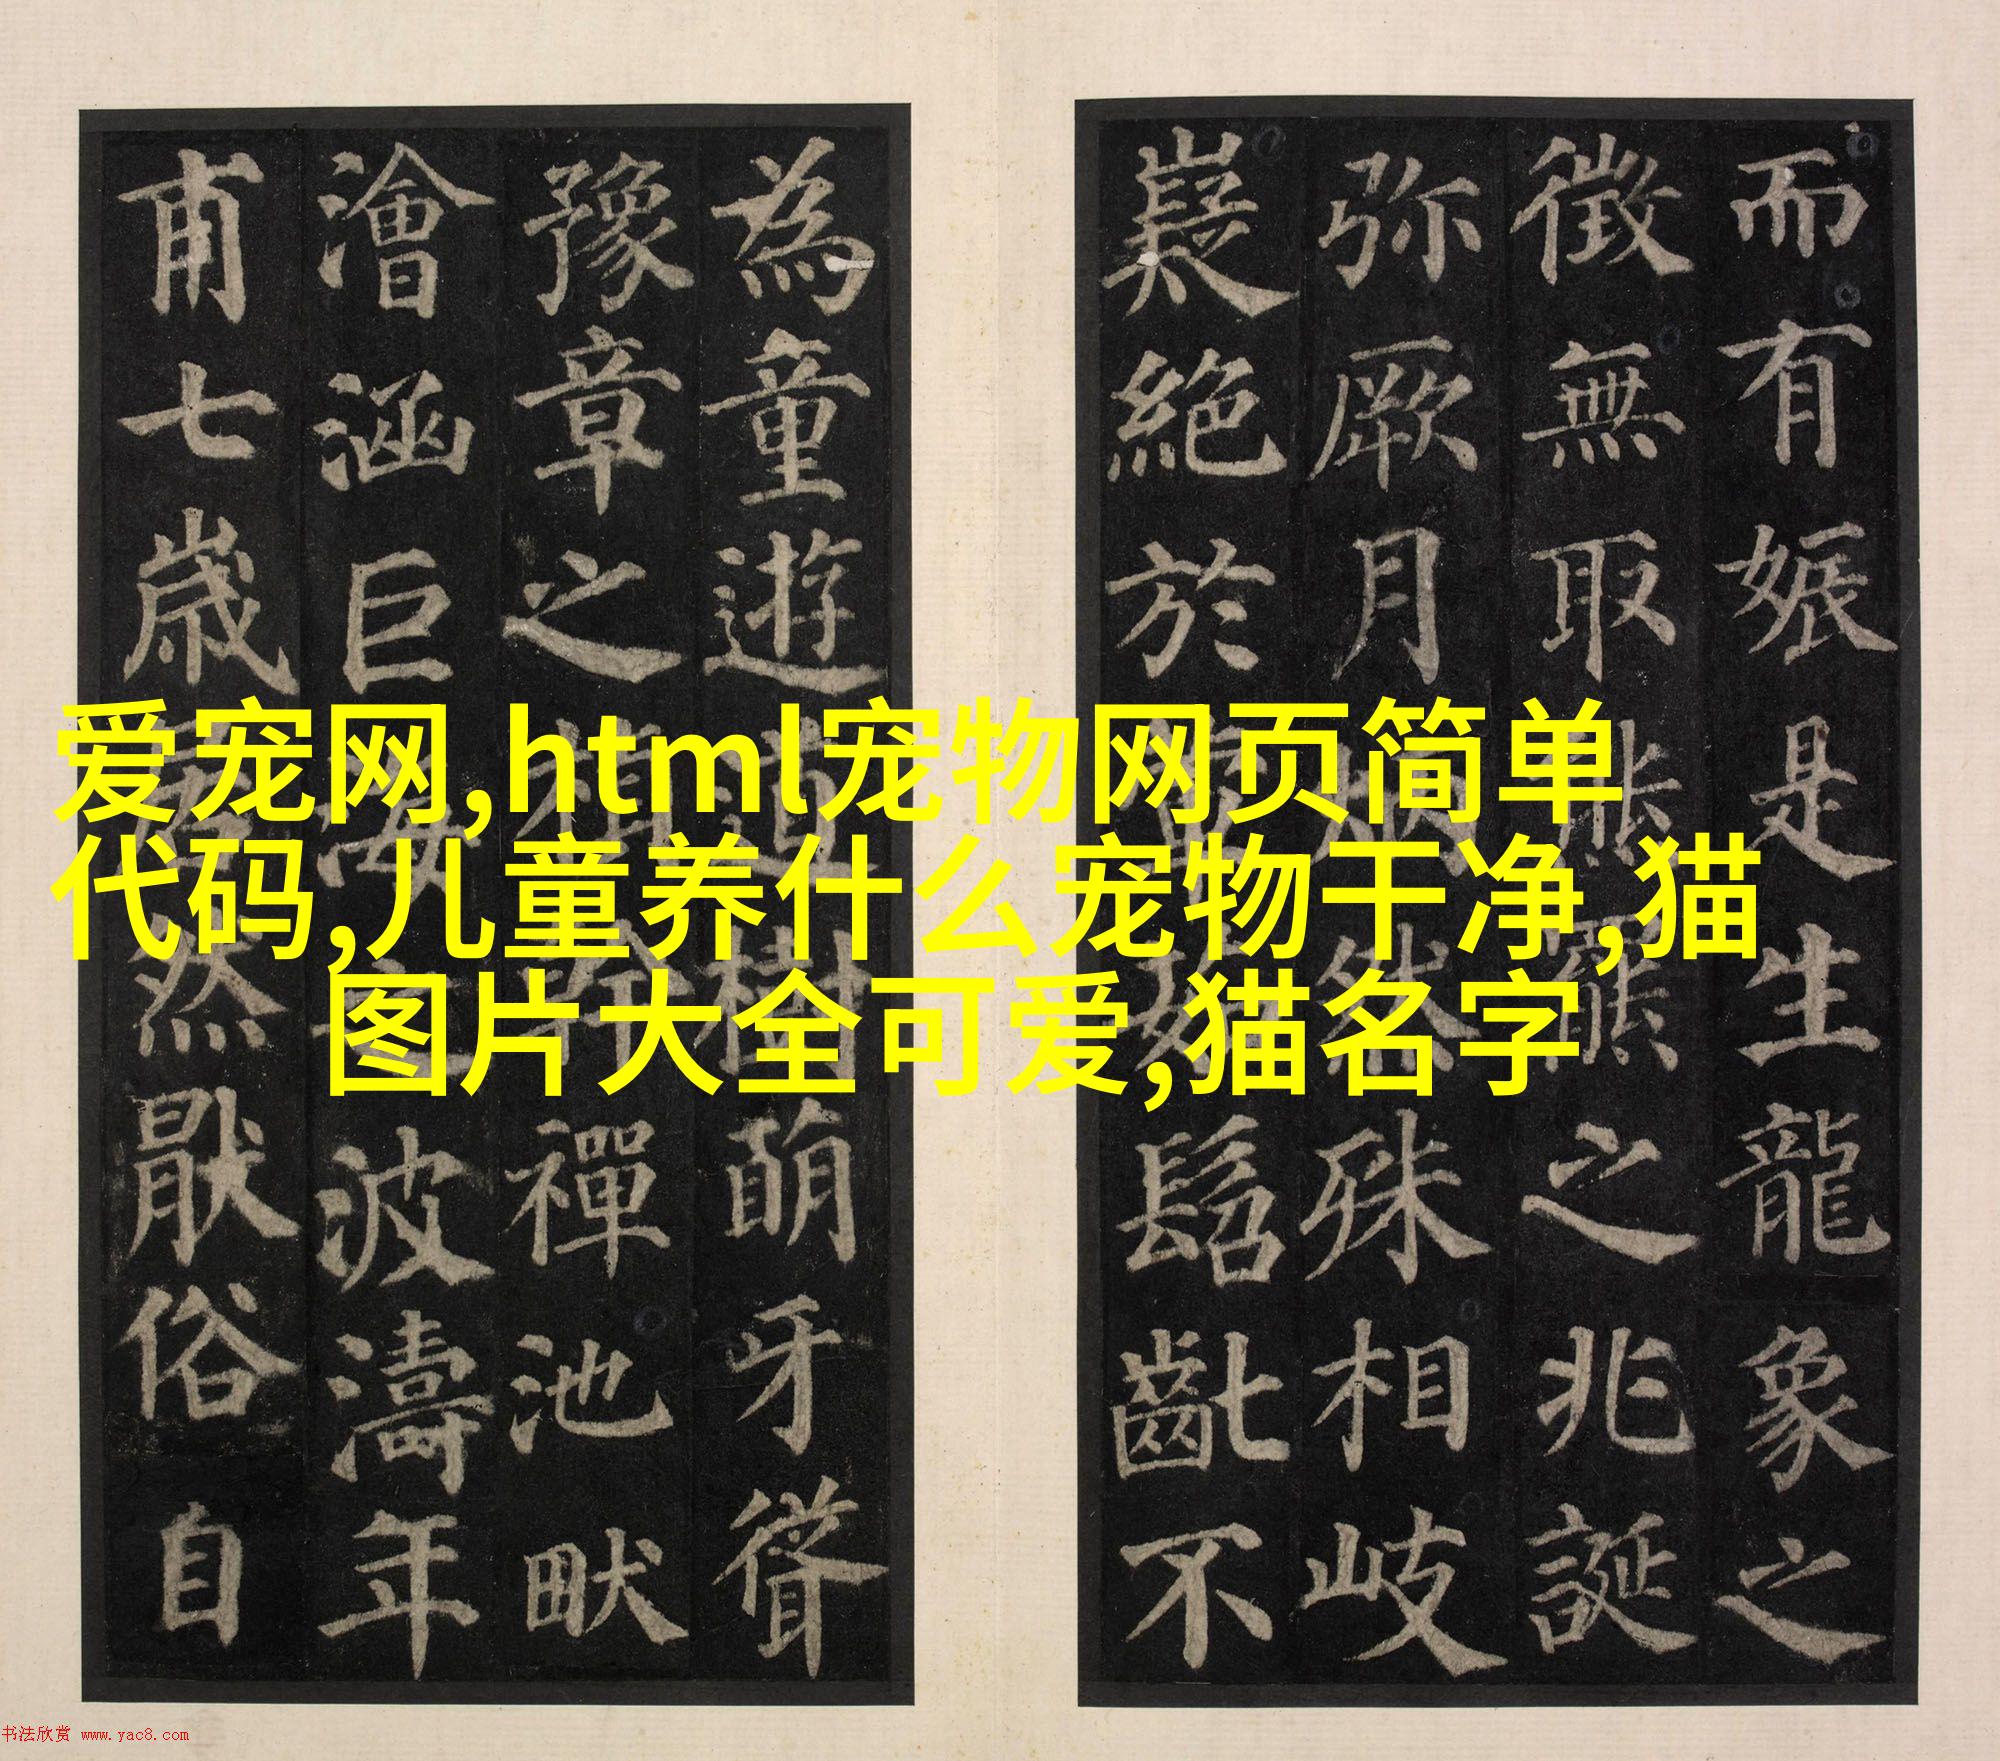 而有娠是生龍象之
徵無取熊羆之兆誕
弥厥月炳然殊相岐
嶷絶於髫齔不
為童遊直樹萌牙聳
豫章之楨幹禪池畎
澮涵巨海之波濤年
甫七歲居然厭俗自
爱宠网,html宠物网页简单
代码,儿童养什么宠物干净,猫
图片大全可爱,猫名字
书法欣赏 www.yac8.com